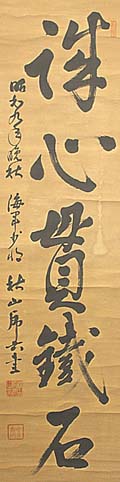 誠心貫鐵石
昭和九年晩秋 海軍少将 秋山虎六書